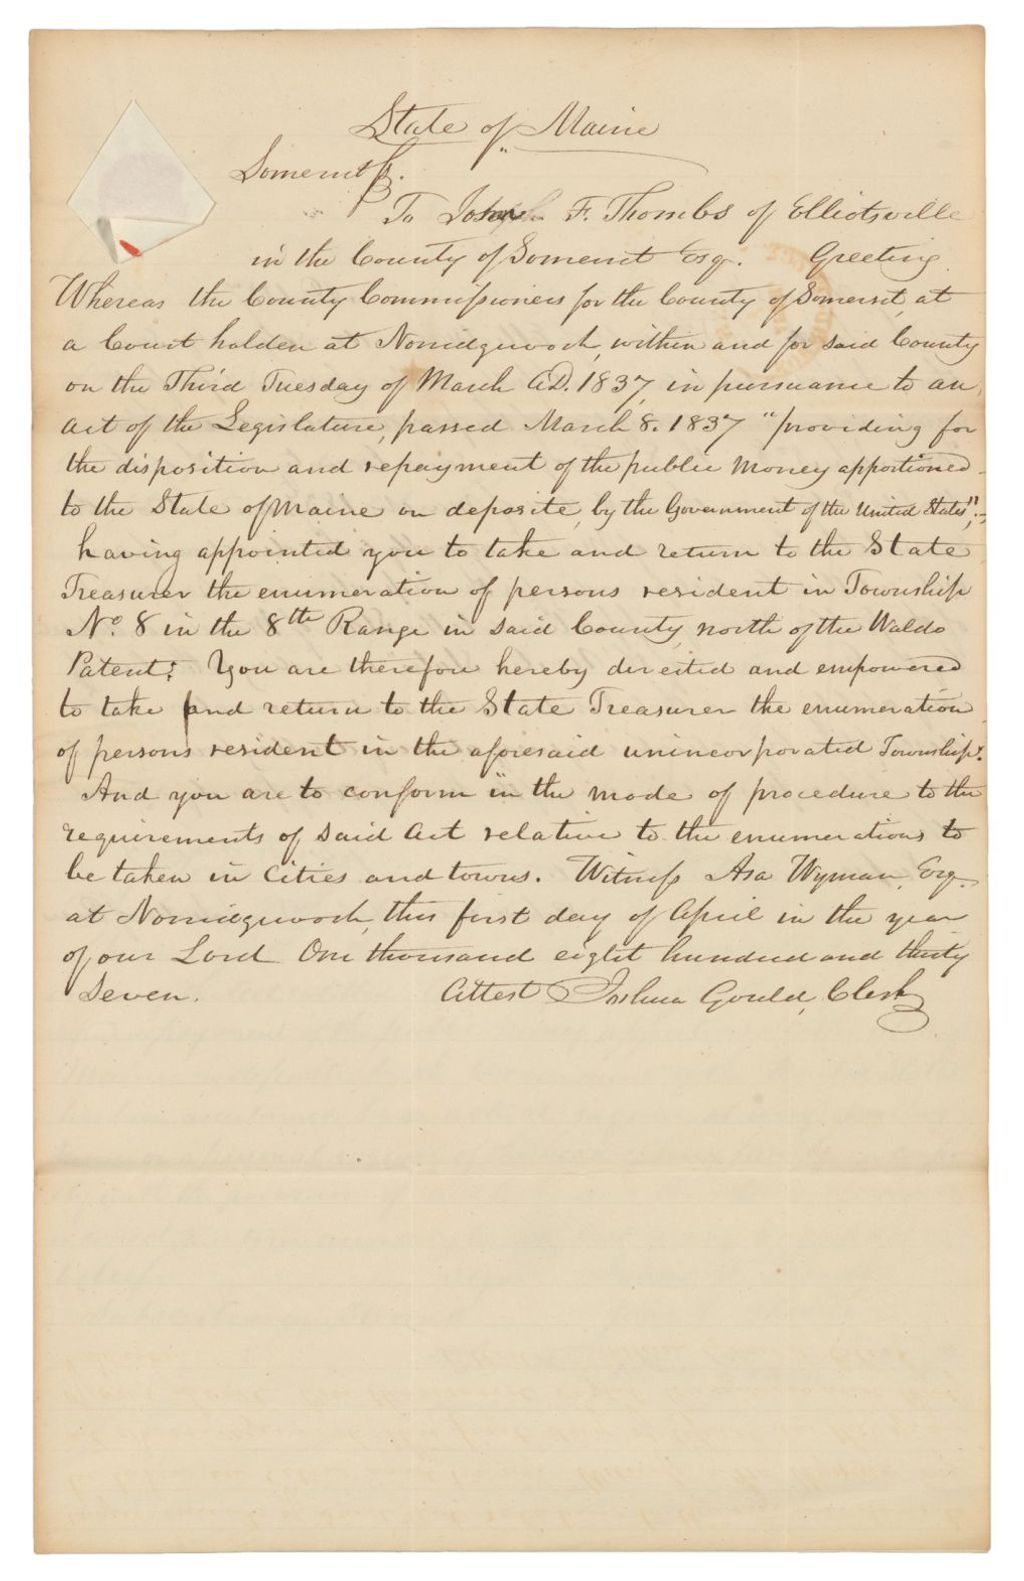 State of Maine
Somerset ss.
To F. Thombs of Elliotsville
in the County of Somerset Esq. Greeting.
Whereas the County Commissioners for the County of Somerset, at
a Court holden at Norridgewock, within and for said County
on the Third Tuesday of March A.D. 1837, in pursuance to an
act of the Legislature, passed March 8. 1837 "providing for
the disposition and repayment of the public money apportioned
to the State of Maine on deposite, by the Government of the United States";
having appointed you to take and return to the State
Treasurer the enumeration of persons resident in Township
No. 8 in the 8th Range in said County, north of the Waldo
Patent; You are therefore hereby directed and empowered
to take and return to the State Treasurer the enumeration
of persons resident in the aforesaid unincorporated Township.
And you are to conform in the mode of procedure to the
requirements of said Act relative to the enumerations to
be taken in Cities and towns. Witness Asa Wyman, Esq.
at Norridgewock, this first day of April in the year
of our Lord One thousand eight hundred and thirty
Seven. Attest Joshua Gould, Clerk